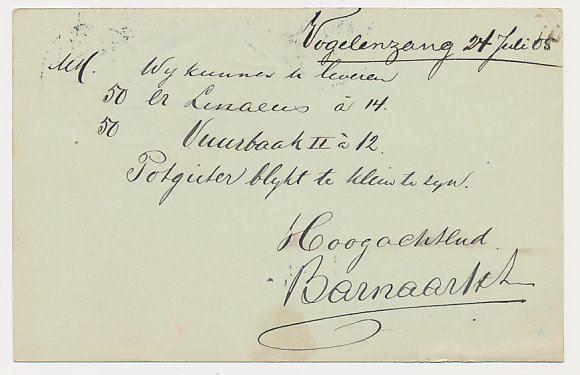 Vogelenzang 24 Juli 05
MM. Wij kunnen u leveren
50 Er Linaeus à 14.
50 Vuurbaak II à 12.
Potgieter blijkt te klein te zyn.
Hoogachtend
Barnaart